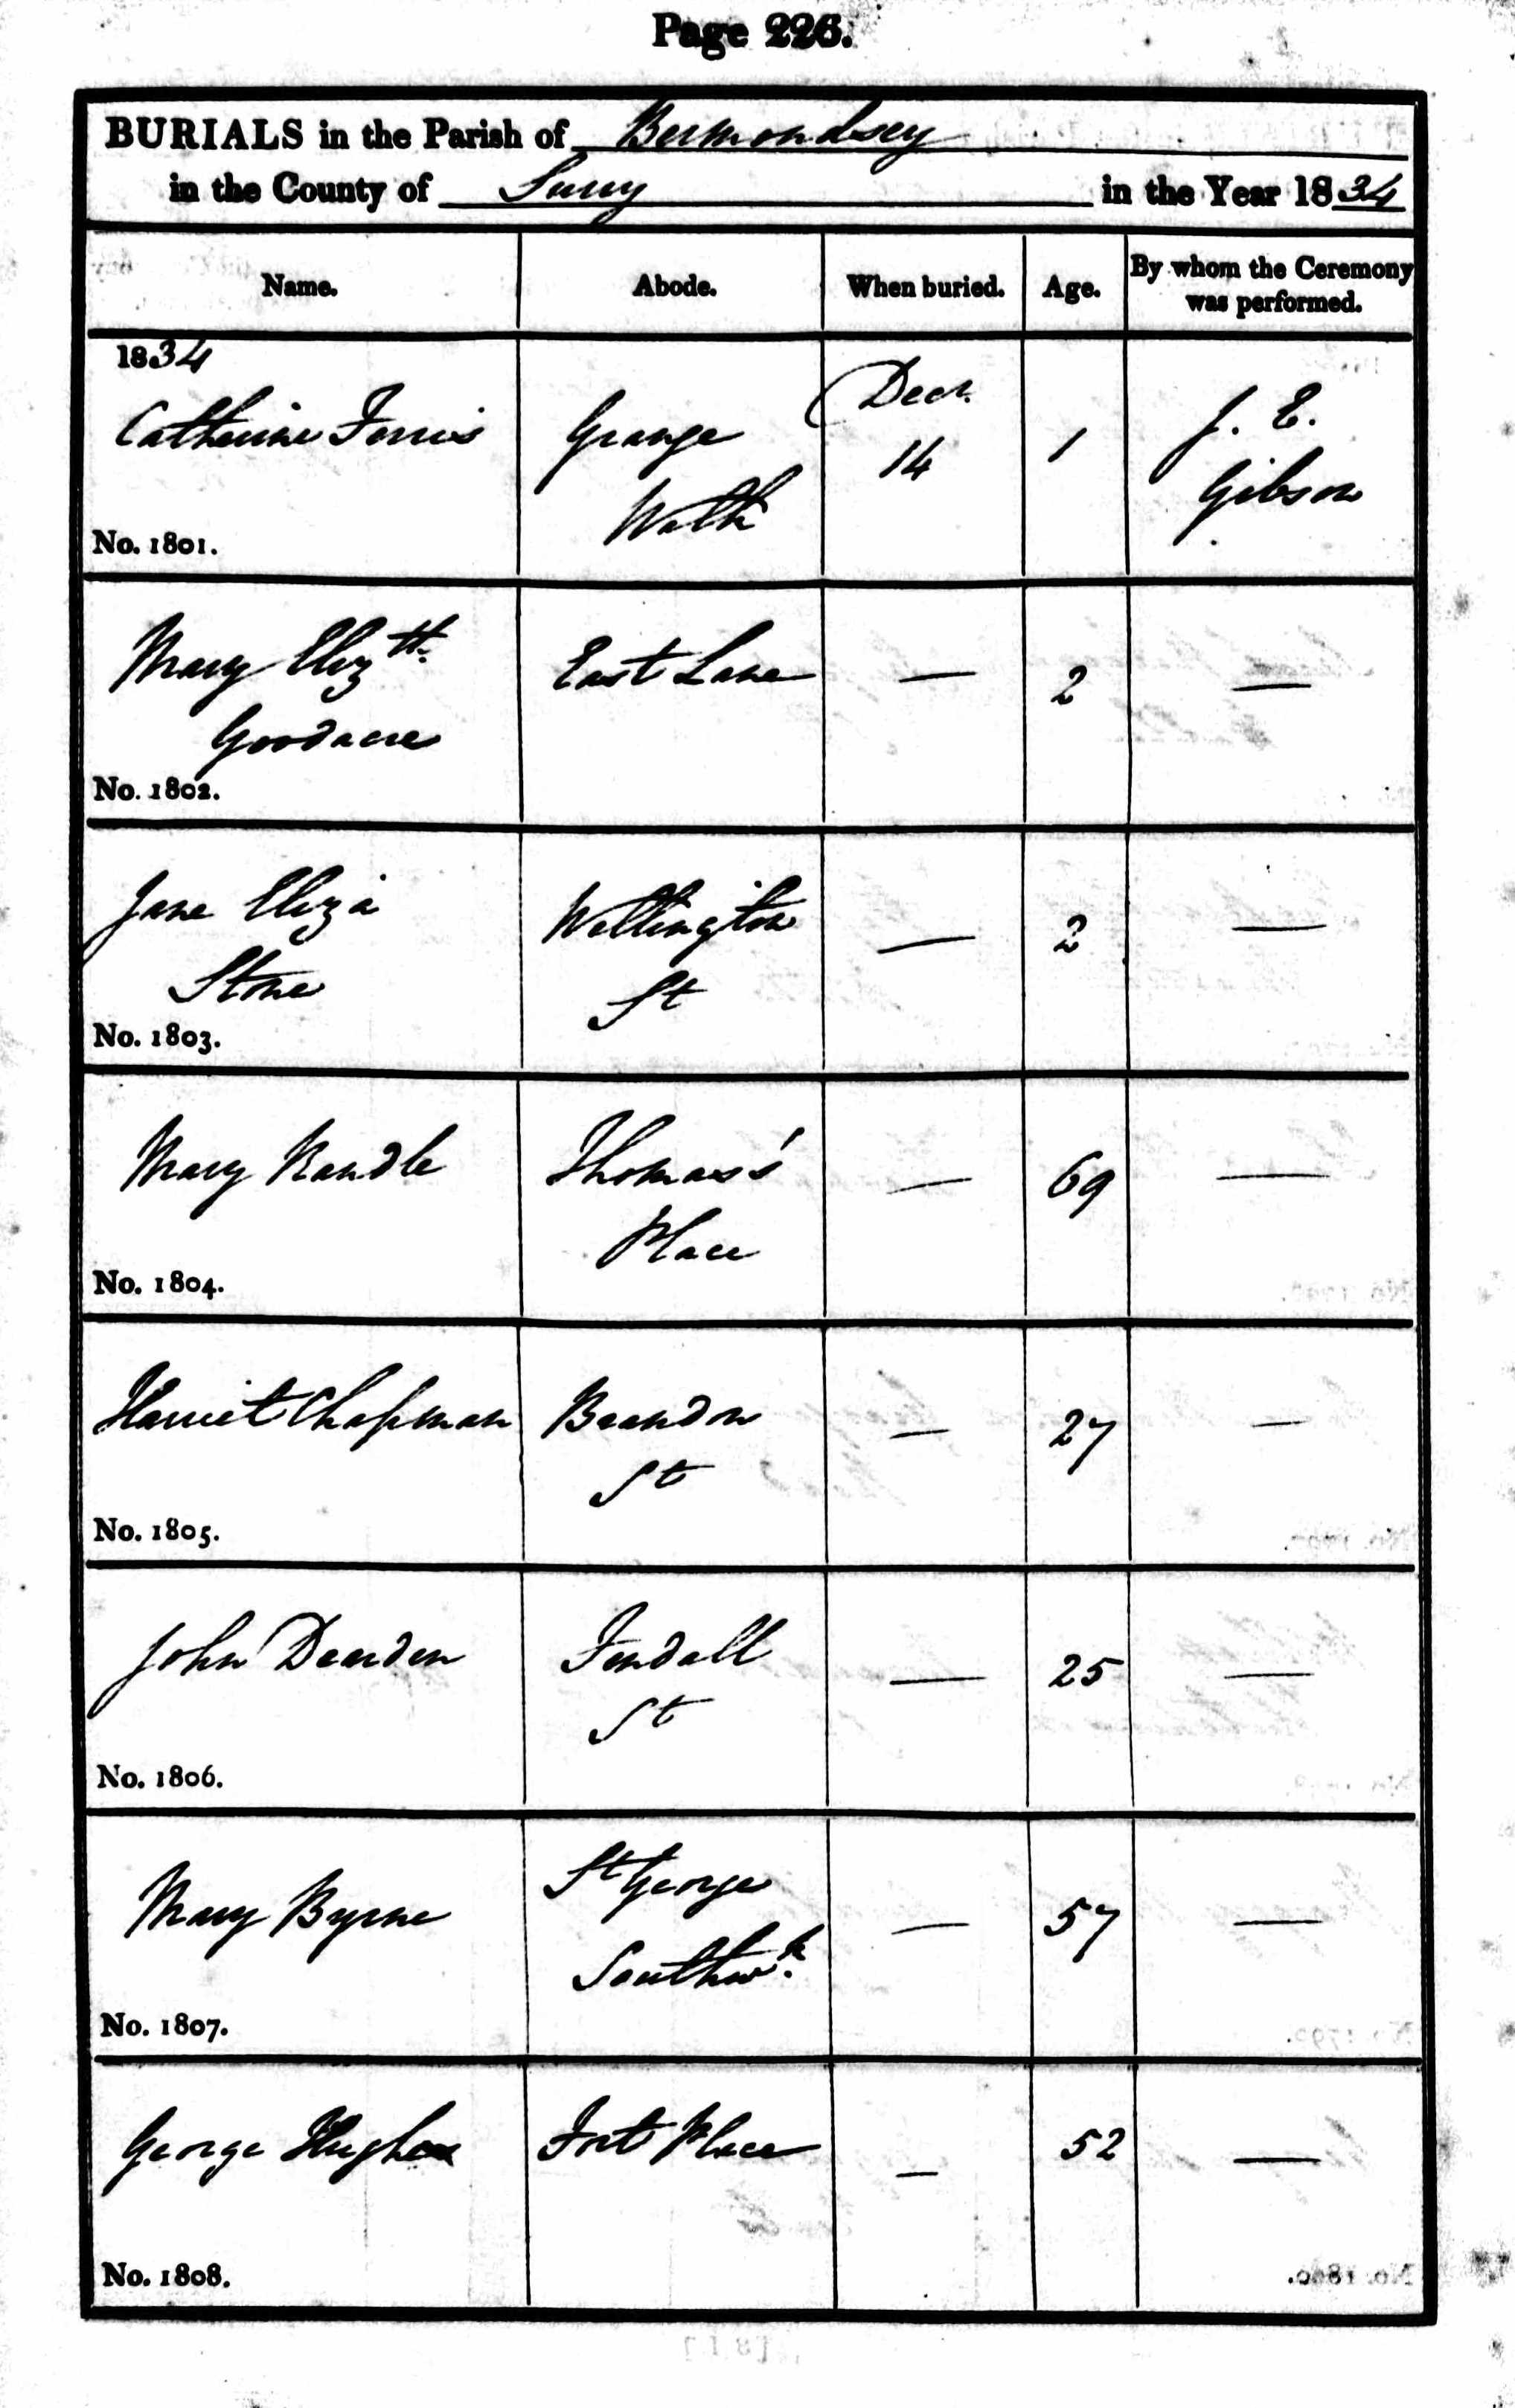 Page 226.
BURIALS in the Parish of Bermondsey
in the County of Surry in the Year 1834
Name. Abode. When buried. Age. By whom the Ceremony was performed.
1834
Catherine Ferris Grange Walk Decr. 14 1 J. E. Gibson
No. 1801.
Mary Elizth. East Lane — 2 —
Goodacre
No. 1802.
Jane Eliza Wellington — 2 —
Stone St
No. 1803.
Mary Randle Thomas's — 69 —
Place
No. 1804.
Harriet Chapman Brandon — 27 —
St
No. 1805.
John Dearden Fendall — 25 —
St
No. 1806.
Mary Byrne St George — 57 —
Southwk.
No. 1807.
George Hughes Fort Place — 52 —
No. 1808.